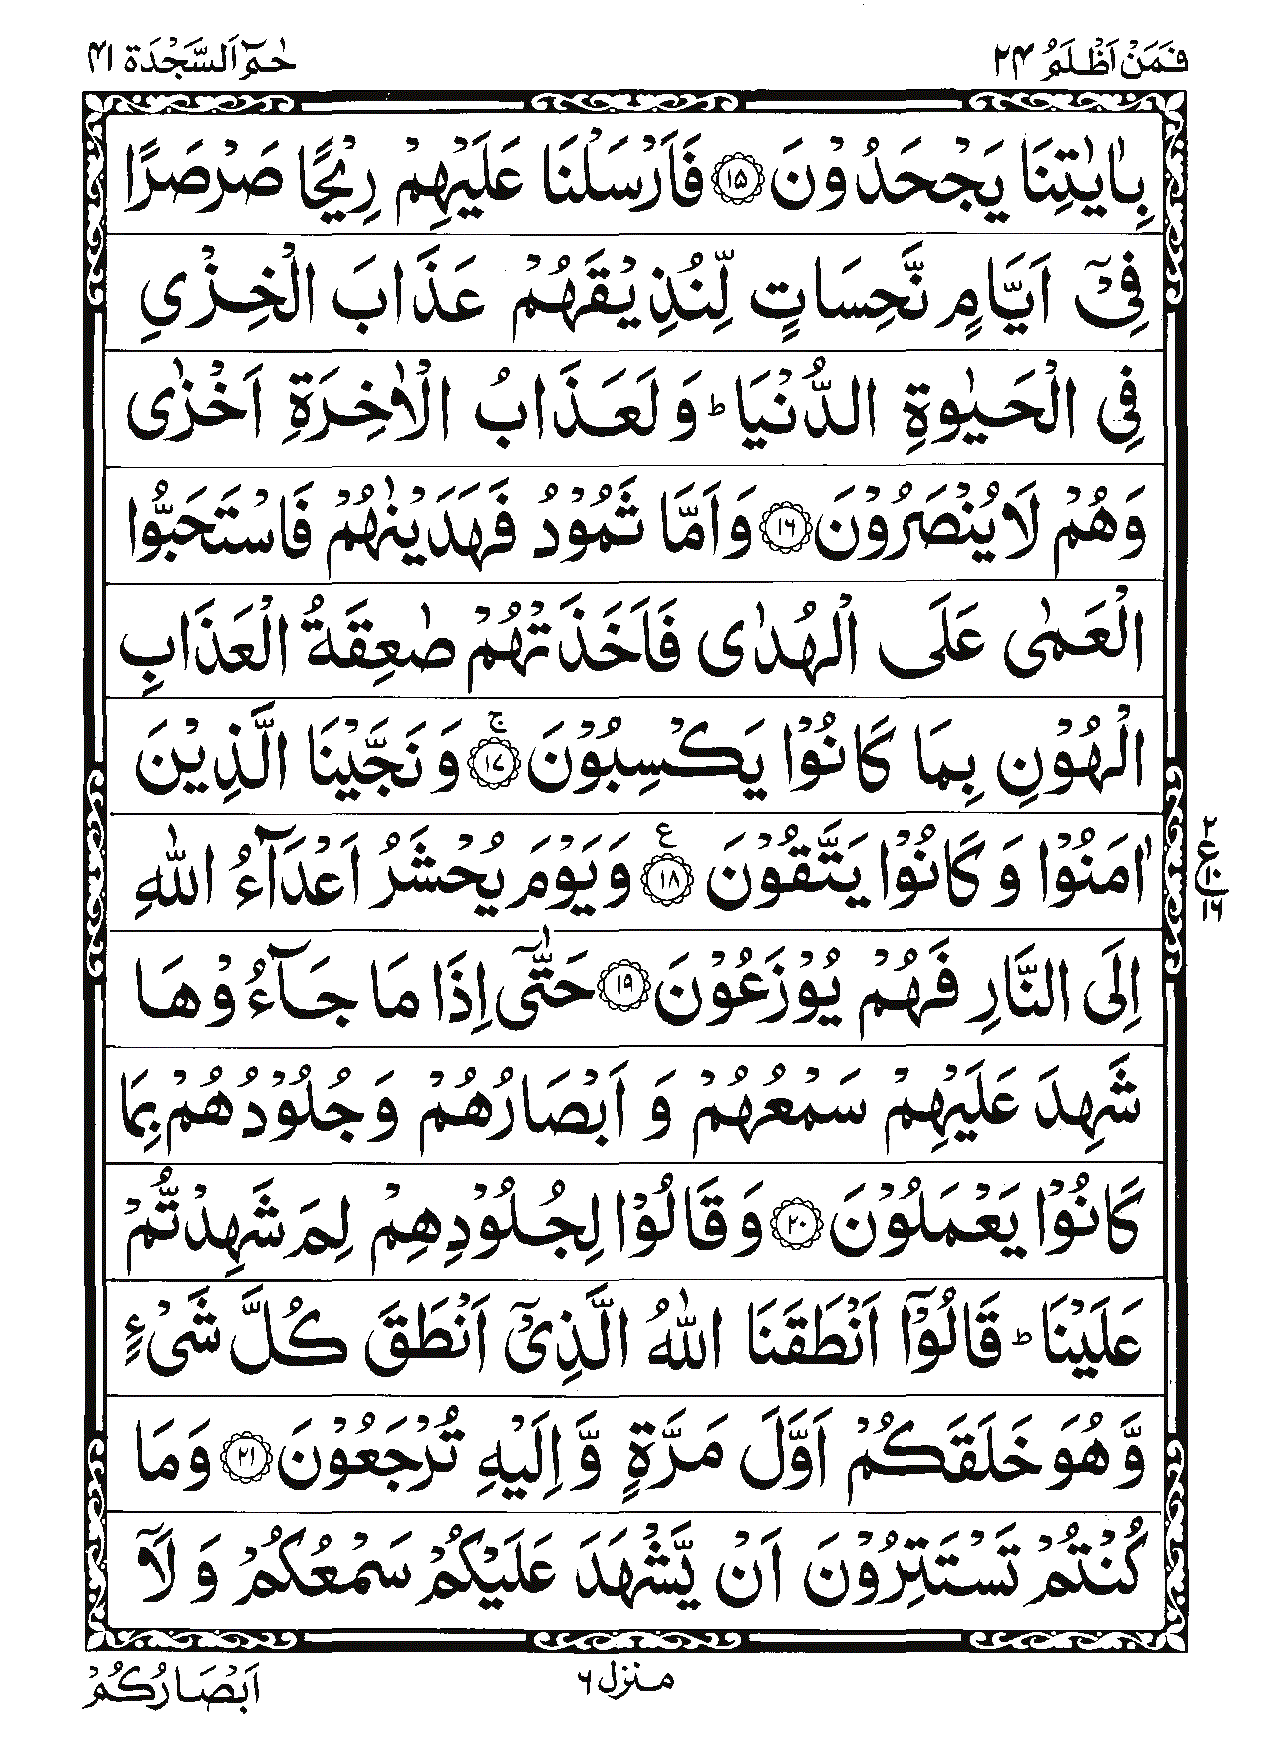 فَمَنْ اَظْلَمُ ۲۴
حٰمٓ اَلسَّجْدَة ۴۱
بِاٰيٰتِنَا يَجْحَدُوْنَ ﴿۱۵﴾ فَاَرْسَلْنَا عَلَيْهِمْ رِيْحًا صَرْصَرًا
فِيْٓ اَيَّامٍ نَّحِسَاتٍ لِّنُذِيْقَهُمْ عَذَابَ الْخِزْيِ
فِي الْحَيٰوةِ الدُّنْيَا ؕ وَ لَعَذَابُ الْاٰخِرَةِ اَخْزٰى
وَهُمْ لَا يُنْصَرُوْنَ ﴿۱۶﴾ وَاَمَّا ثَمُوْدُ فَهَدَيْنٰهُمْ فَاسْتَحَبُّوا
الْعَمٰى عَلَى الْهُدٰى فَاَخَذَتْهُمْ صٰعِقَةُ الْعَذَابِ
الْهُوْنِ بِمَا كَانُوْا يَكْسِبُوْنَ ﴿۱۷﴾ۚ وَ نَجَّيْنَا الَّذِيْنَ
اٰمَنُوْا وَ كَانُوْا يَتَّقُوْنَ ﴿۱۸﴾ ع وَ يَوْمَ يُحْشَرُ اَعْدَآءُ اللّٰهِ
۲
ع
۱۰
۱۶
اِلَى النَّارِ فَهُمْ يُوْزَعُوْنَ ﴿۱۹﴾ حَتّٰٓى اِذَا مَا جَآءُوْهَا
شَهِدَ عَلَيْهِمْ سَمْعُهُمْ وَ اَبْصَارُهُمْ وَ جُلُوْدُهُمْ بِمَا
كَانُوْا يَعْمَلُوْنَ ﴿۲۰﴾ وَ قَالُوْا لِجُلُوْدِهِمْ لِمَ شَهِدْتُّمْ
عَلَيْنَا ؕ قَالُوْٓا اَنْطَقَنَا اللّٰهُ الَّذِيْٓ اَنْطَقَ كُلَّ شَيْءٍ
وَّ هُوَ خَلَقَكُمْ اَوَّلَ مَرَّةٍ وَّ اِلَيْهِ تُرْجَعُوْنَ ﴿۲۱﴾ وَ مَا
كُنْتُمْ تَسْتَتِرُوْنَ اَنْ يَّشْهَدَ عَلَيْكُمْ سَمْعُكُمْ وَ لَآ
منزل ۶
اَبْصَارُكُمْ